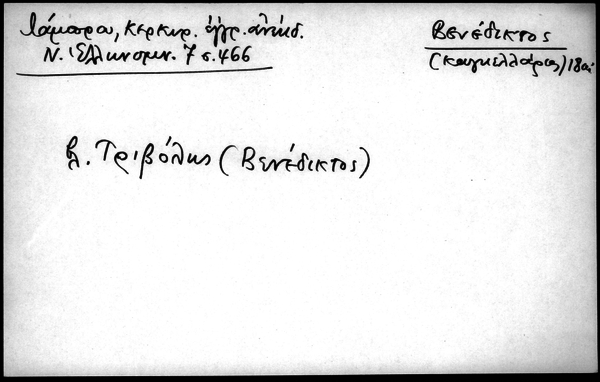 Λάμπρου, Κερκυρ. ἔγγρ. ἀνέκδ.
Ν. Ἑλληνομν. 7 σ. 466
Βενέδικτος
(καγκελλάριος) 18 αἰ
βλ. Τριβόλης (Βενέδικτος)